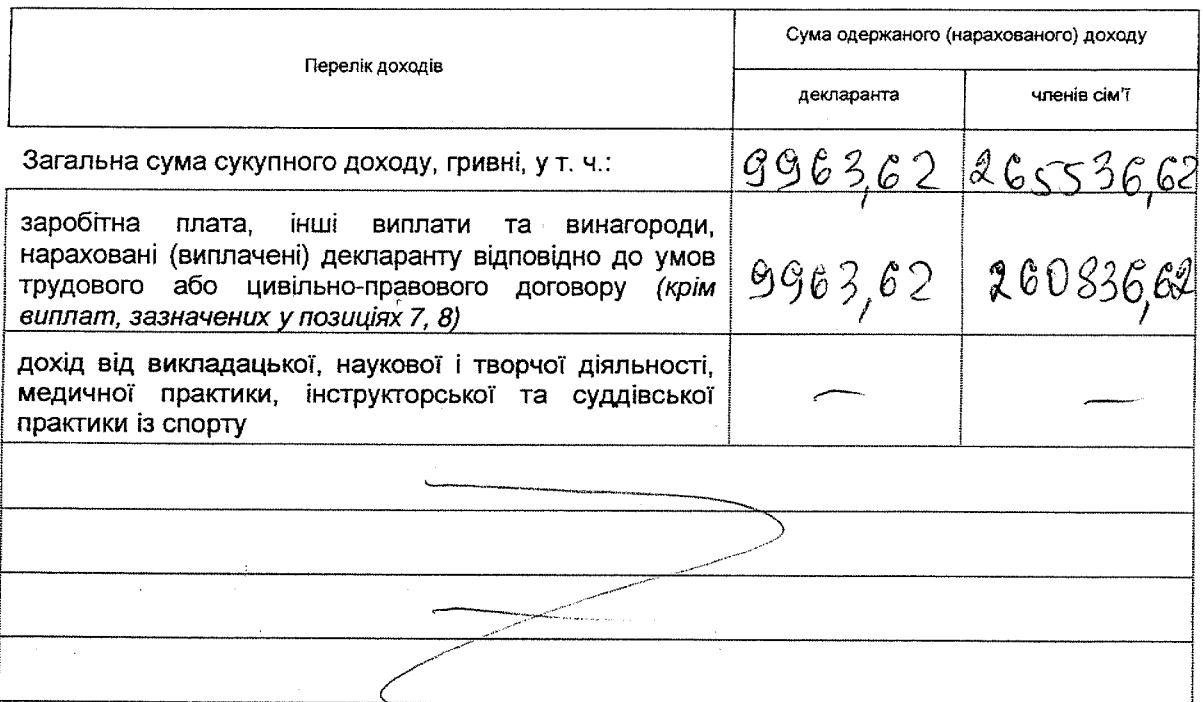 Перелік доходів
Сума одержаного (нарахованого) доходу
декларанта
членів сім'ї
Загальна сума сукупного доходу, гривні, у т. ч.:
9963,62
265536,62
заробітна плата, інші виплати та винагороди,
нараховані (виплачені) декларанту відповідно до умов
трудового або цивільно-правового договору (крім
виплат, зазначених у позиціях 7, 8)
9963,62
260836,62
дохід від викладацької, наукової і творчої діяльності,
медичної практики, інструкторської та суддівської
практики із спорту
—
—